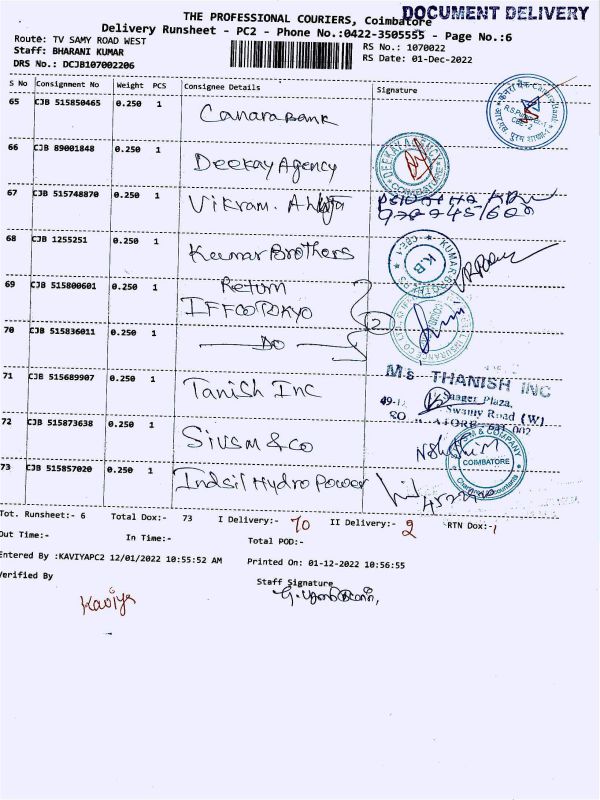 DOCUMENT DELIVERY
THE PROFESSIONAL COURIERS, Coimbatore
Delivery Runsheet - PC2 - Phone No.:0422-3505555 - Page No.:6
Route: TV SAMY ROAD WEST
RS No.: 1070022
Staff: BHARANI KUMAR
RS Date: 01-Dec-2022
DRS No.: DCJB107002206
S No Consignment No Weight PCS Consignee Details Signature
65 CJB 515850465 0.250 1 Canara Bank
66 CJB 89001848 0.250 1 Deekay Agency
DEEKAY AGENCY COIMBATORE
67 CJB 515748870 0.250 1 Vikram.
68 CJB 1255251 0.250 1 Kumar Brothers
KUMAR BROTHERS CBE-1 K.B
69 CJB 515800601 0.250 1 Return
IFFCO TOKYO
2
70 CJB 515836011 0.250 1 DO
71 CJB 515689907 0.250 1 Tanish Inc
M/s THANISH INC
Plaza,
Swamy Road (W)
72 CJB 515873638 0.250 1 Sivsm & Co
M & COMPANY COIMBATORE Chartered Accountants
73 CJB 515857020 0.250 1 Indsil Hydro Power
Tot. Runsheet:- 6 Total Dox:- 73 I Delivery:- 70 II Delivery:- 2 RTN Dox:- 1
Out Time:- In Time:- Total POD:-
Entered By :KAVIYAPC2 12/01/2022 10:55:52 AM Printed On: 01-12-2022 10:56:55
Verified By Staff Signature
Kaviya